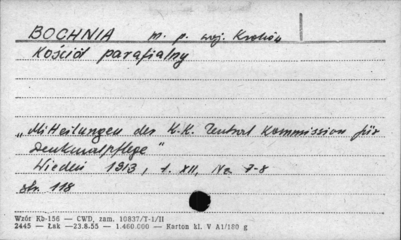 BOCHNIA m. p. woj. Kraków
Kościół parafialny
„Mitteilungen der K.K. Zentral Kommission für
Denkmalpflege"
Wiedeń 1913, t. XII, No. 7-8
str. 118
Wzór Kb-156 — CWD, zam. 10837/T-1/II
2445 — Łak —23.8.55 — 1.460.000 — Karton kl. V A1/180 g